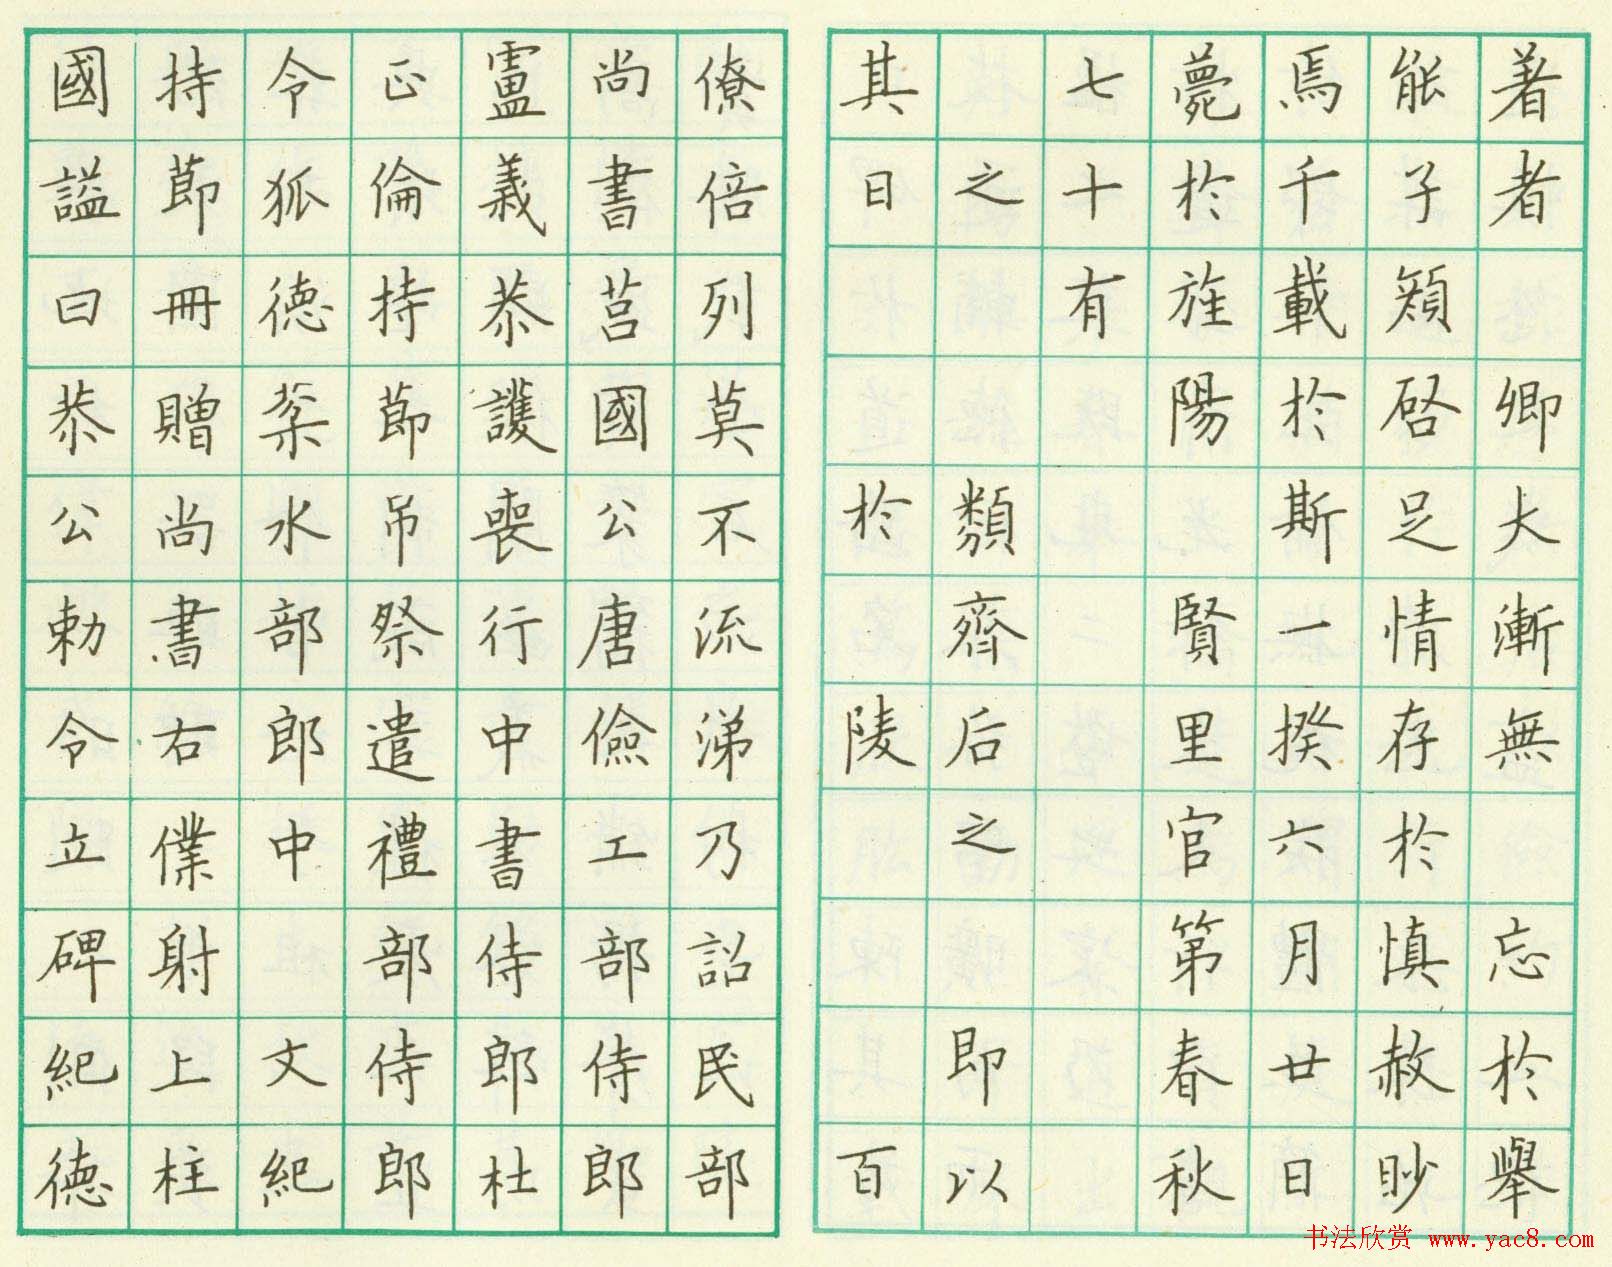 著者卿大漸無忘於舉
能子啓足情存於慎赦眇
焉千載於斯一揆六月廿日
薨於旌陽賢里官第春秋
七十有
之類齊后之即以
其日於陵百
僚倍列莫不流涕乃詔民部
尚書莒國公唐儉工部侍郎
盧義恭護喪行中書侍郎杜
正倫持莭吊祭遣禮部侍郎
令狐德棻水部郎中文紀
持莭冊贈尚書右僕射上柱
國謚曰恭公勅令立碑紀德
书法欣赏 www.yac8.com